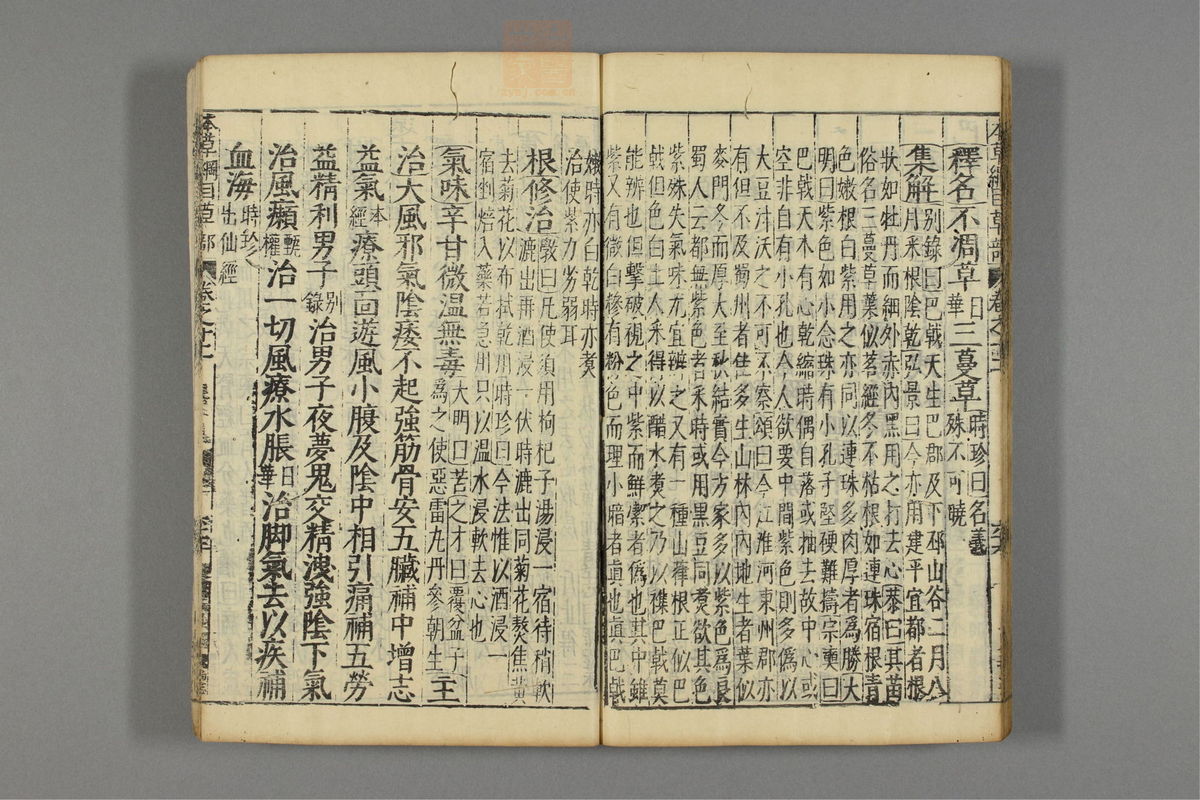 釋名不凋草日華三蔓草時珍曰名義殊不可曉
集解別錄曰巴戟天生巴郡及下邳山谷二月八月采根陰乾弘景曰今亦用建平宜都者根
狀如牡丹而細外赤內黑用之打去心恭曰其苗
俗名三蔓草葉似茗經冬不枯根如連珠宿根青
色嫩根白紫用之亦同以連珠多肉厚者爲勝大
明曰紫色如小念珠有小孔子堅硬難擣宗奭曰
巴戟天本有心乾縮時偶自落或抽去故中心或
空非自有小孔也今人欲要中間紫色則多僞以
大豆汁沃之不可不察頌曰今江淮河東州郡亦
有但不及蜀州者佳多生山林內內地生者葉似
麥門冬而厚大至秋結實今方家多以紫色爲良
蜀人云都無紫色者采時或用黑豆同煮欲其色
紫殊失氣味尤宜辨之又有一種山葎根正似巴
戟但色白土人采得以醋水煮之乃以襍巴戟莫
能辨也但擊破視之中紫而鮮潔者僞也其中雖
紫又有微白糝有粉色而理小暗者真也真巴戟
嫩時亦白乾時亦煮
治使紫力劣弱耳
根修治斅曰凡使須用枸杞子湯浸一宿待稍軟漉出再酒浸一伏時漉出同菊花熬焦黃
去菊花以布拭乾用時珍曰今法惟以酒浸一
宿剉焙入藥若急用只以溫水浸軟去心也
氣味辛甘微溫無毒大明曰苦之才曰覆盆子爲之使惡雷丸丹參朝生主
治大風邪氣陰痿不起強筋骨安五臟補中增志
益氣本經療頭面遊風小腹及陰中相引痛補五勞
益精利男子別錄治男子夜夢鬼交精洩強陰下氣
治風癩甄權治一切風療水脹日華治脚氣去以疾補
血海時珍出仙經
本草綱目草部
卷之十二